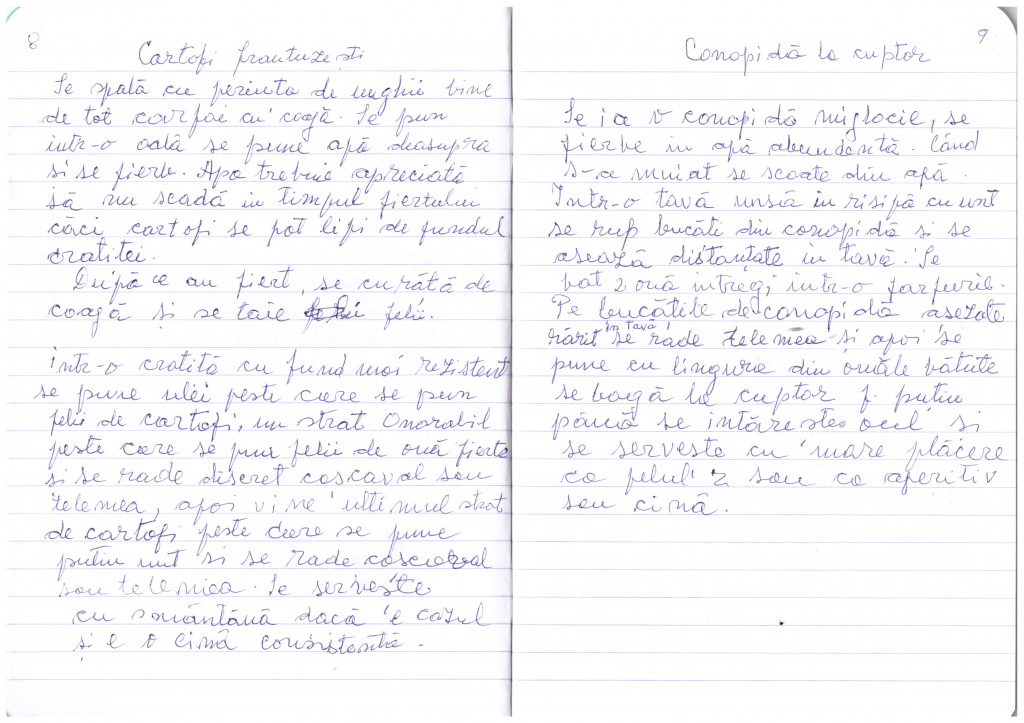 8
Cartofi frantuzești
Se spală cu periuta de unghii bine
de tot carfoi cu coagă. Se pun
intr-o oală se pune apă deasupra
si se fierb. Apa trebuie apreciată
să nu scadă in timpul fiertului
căci cartofi se pot lipi de fundul
cratitei.
După ce au fiert, se curătă de
coagă și se taie felii.
intr-o cratită cu fund moi rezistent
se pune ulei peste care se pun
felii de cartofi, un strat Onorabil
peste care se pun felii de ouă fierte
si se rade discret coscaval sau
telemea, apoi vine ultimul strat
de cartofi peste care se pune
putin unt si se rade coscaval
sau telemea. Se servește
cu smântână dacă e cazul
și e o cină consistentă.
9
Conopidă la cuptor
Se ia o conopidă miglocie, se
fierbe in apă abundentă. Când
s-a muiat se scoate din apă.
Intr-o tavă unsă in risipă cu unt
se rup bucăti din conopidă si se
asează distantate in tavă. Se
bat 2 ouă intregi intr-o farfurie.
Pe bucătile de conopidă asezate
rărit in tavă se rade telemea si apoi se
pune cu lingura din ouăle bătute
se bagă la cuptor f. putin
până se intăreste oul si
se serveste cu mare plăcere
ca felul 2 sau ca aperitiv
sau cină.